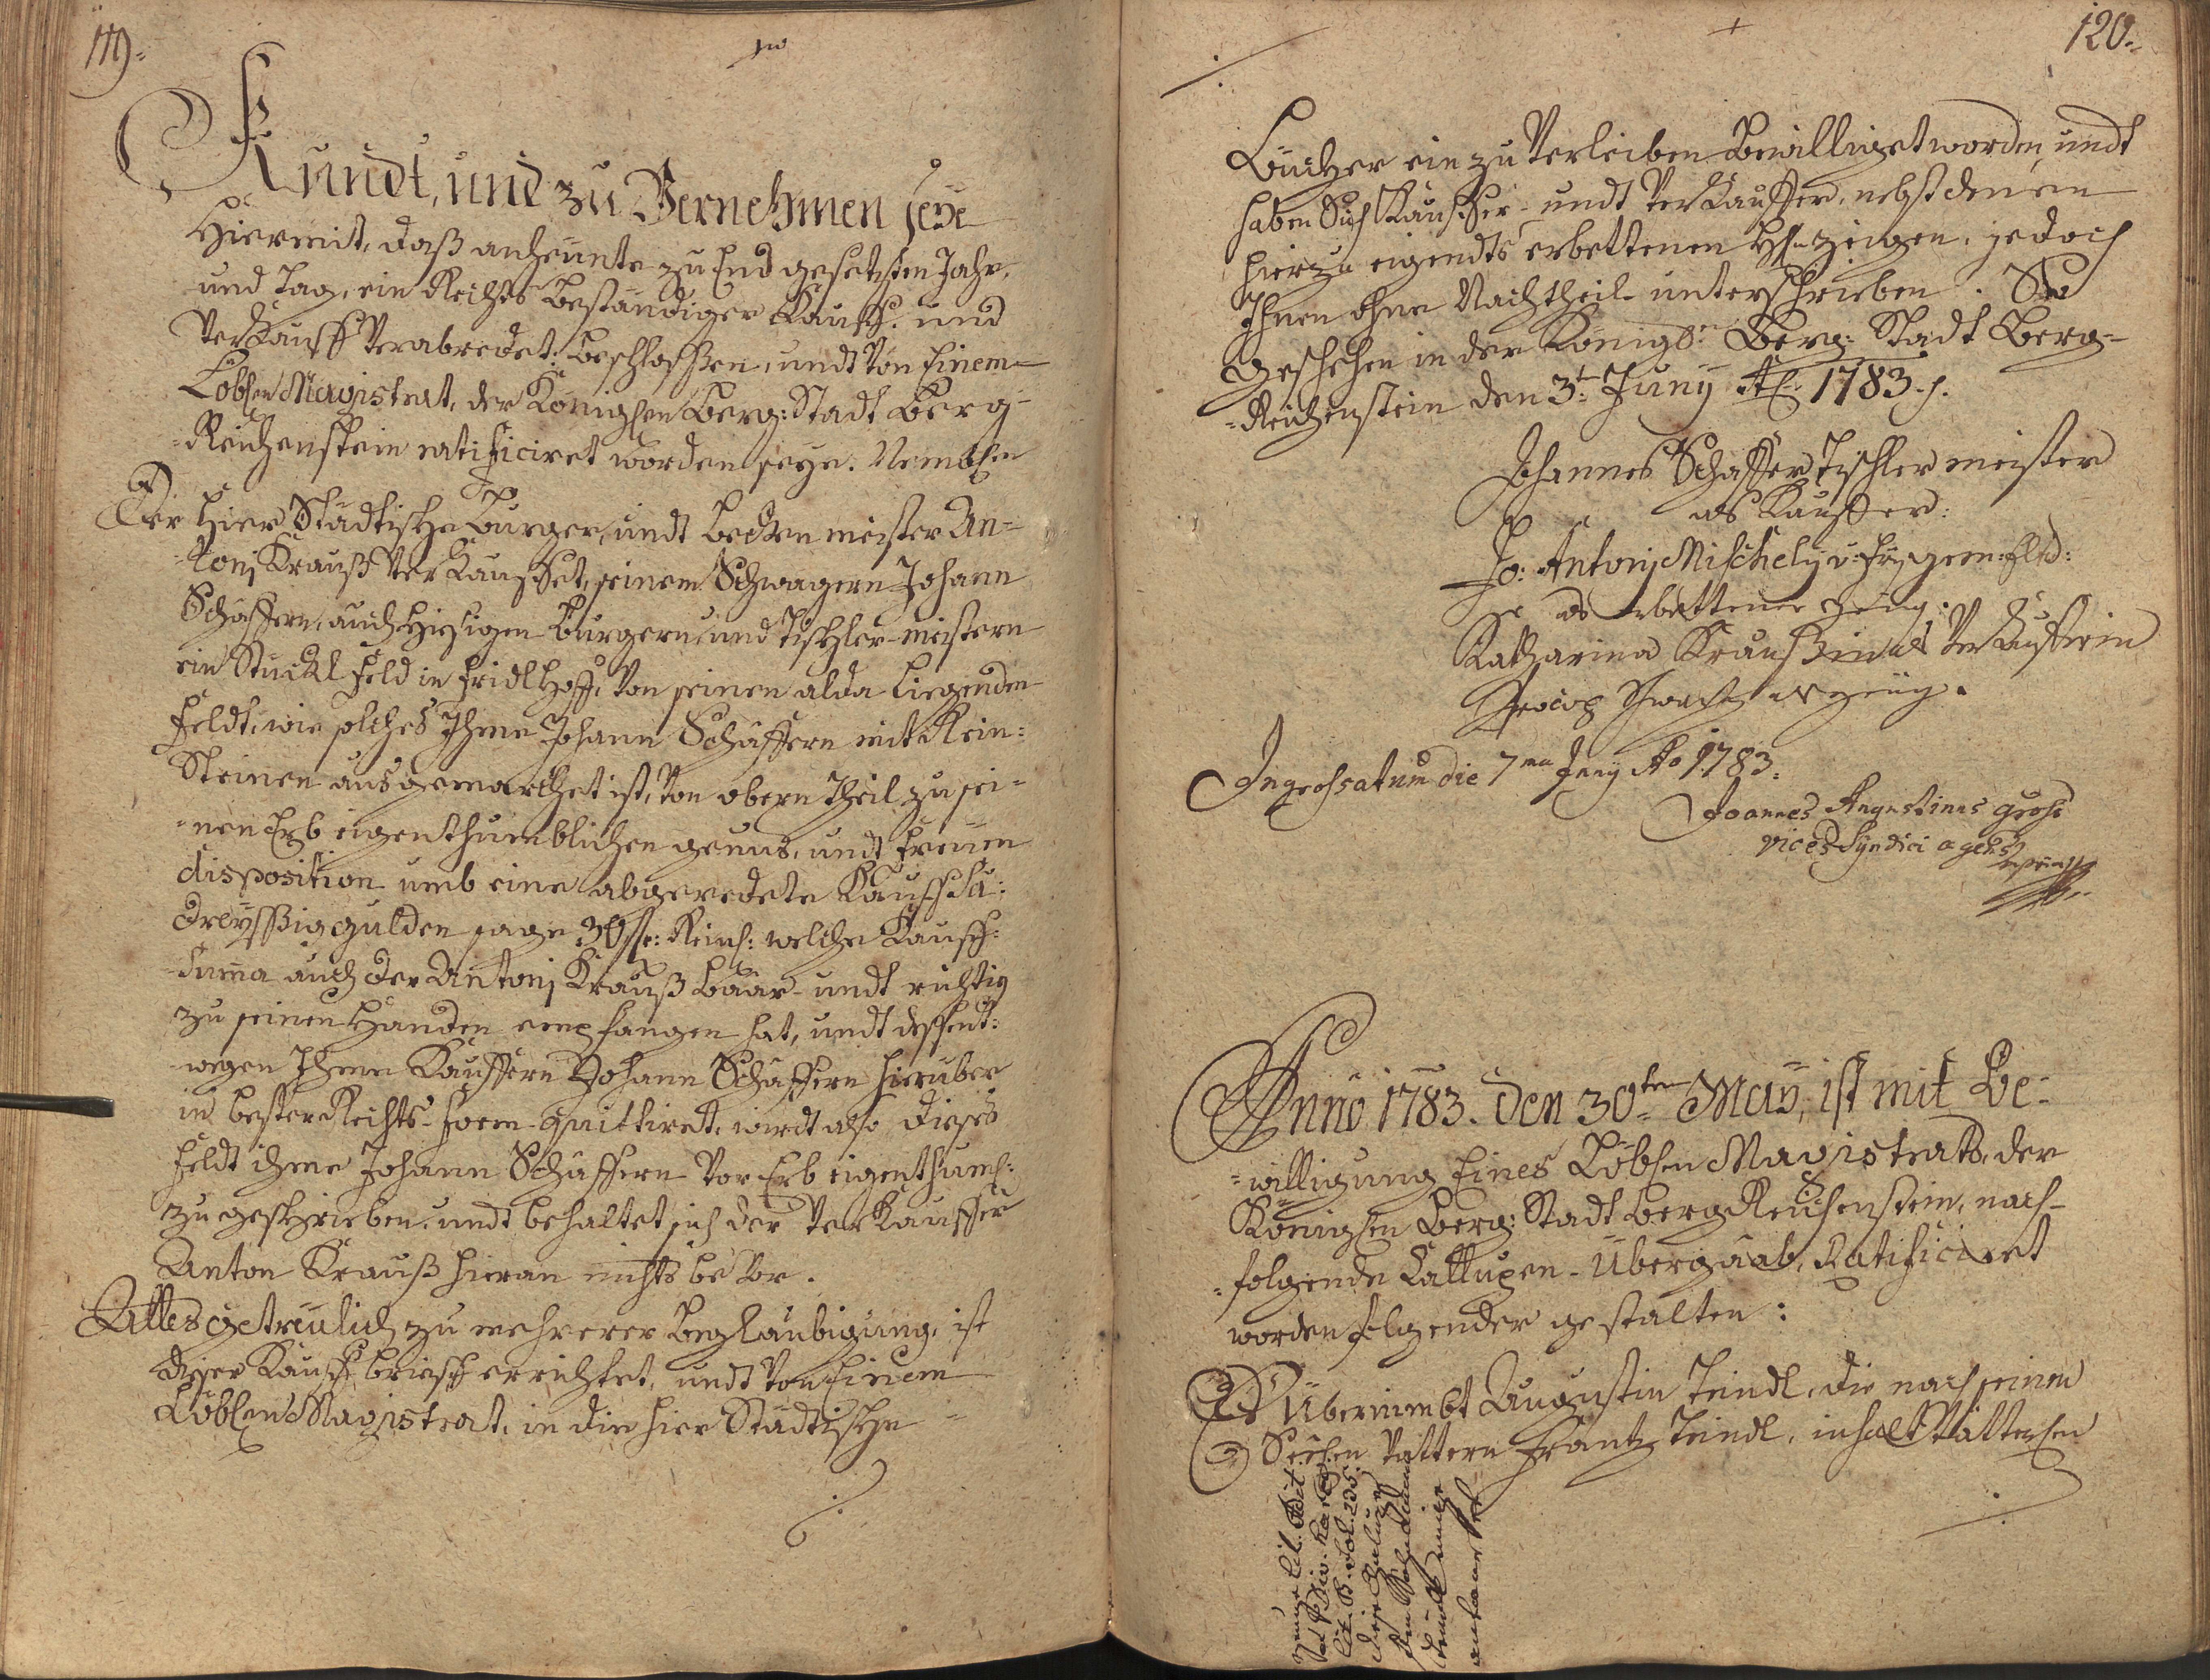 119.
Kundt, und zu Vernehmen seye
Hiermit, daß anheünte zu End gesetzten Jahr,
und Tag, ein Rechts Beständiger Kauff- und
Verkauff Verabredet, beschlossen, undt Von Einem
Löblen Magistrat, der Königlen Berg: Stadt Berg-
=Reichenstein ratificiret worden seye. Nemblen
Der Hier Städtische Burger, undt Becken meister An=
toni Krauß Verkauffet, seinem Schwagern Johann
Schäffern, auch Hiesigen Burgern, und Tischler-meistern
ein Stückl Feld in Fridlhoff, Von seinen alda Liegenden
Feldt, wie solches Ihme Johann Schäffern mit Rein=
Steinen ausgemarchet ist, Von obern Theil zu sei=
=nen Erb eigenthumblichen genus, undt freÿen
disposition umb eine abgeredete Kauff Sa:
Dreÿssig gulden sage 30 fl: Reinl: welche Kauff=
Suma auch der Antoni Krauß baar- undt richtig
zu seinen Handen empfangen hat, undt dessent=
wegen Ihme Kauffern Johann Schäffern hierüber
in bester Rechts-Form-quittiret, wirdt also dieses
Feldt ihme Johann Schäffern Vor Erb eigenthuml:
zugeschrieben, undt behaltet sich der Verkauffer
Anton Krauß hieran nichts be Vor.
Alles getreulich zu mehrerer Beglaubigung, ist
dieser Kauff brieff errichtet, undt Von Einem
Löblen Magistrat, in die hier Städtische
120.
Bücher ein zu Verleiben Bewilliget worden, undt
haben Sich Kauffer- undt Verkauffern, nebst denen
hierzu eigendts erbettenen H: zeügen, jedoch
Ihnen ohne Nachtheil unterschrieben. So
geschehen in der Königl: Berg: Stadt Berg=
=Reichenstein den 3t: Junÿ A: 1783.
Johannes Schaffer Tischler meister
als Kauffer:
Jo: Antoni Mischelÿ
als erbettener Zeüg:
Katharina Kraußin als Verkaufferin
Procop als zeüg.
Ingrossatum die 7ma Junÿ Ao 1783.
Joannes Augustinus
vices Syndici agens
Anno 1783. den 30ten Maÿ, ist mit Be=
=willigung Eines Löblen Magistrats, der
Königlen Berg: Stadt Bergreichenstein, nach=
=folgende Calluppen-Übergaab, Ratificiret
worden folgender gestalten:
Es Übernimbt Augustin Teindl, die nach seinen
Seelen Vattern Frantz Teindl, inhalt Vatterlen